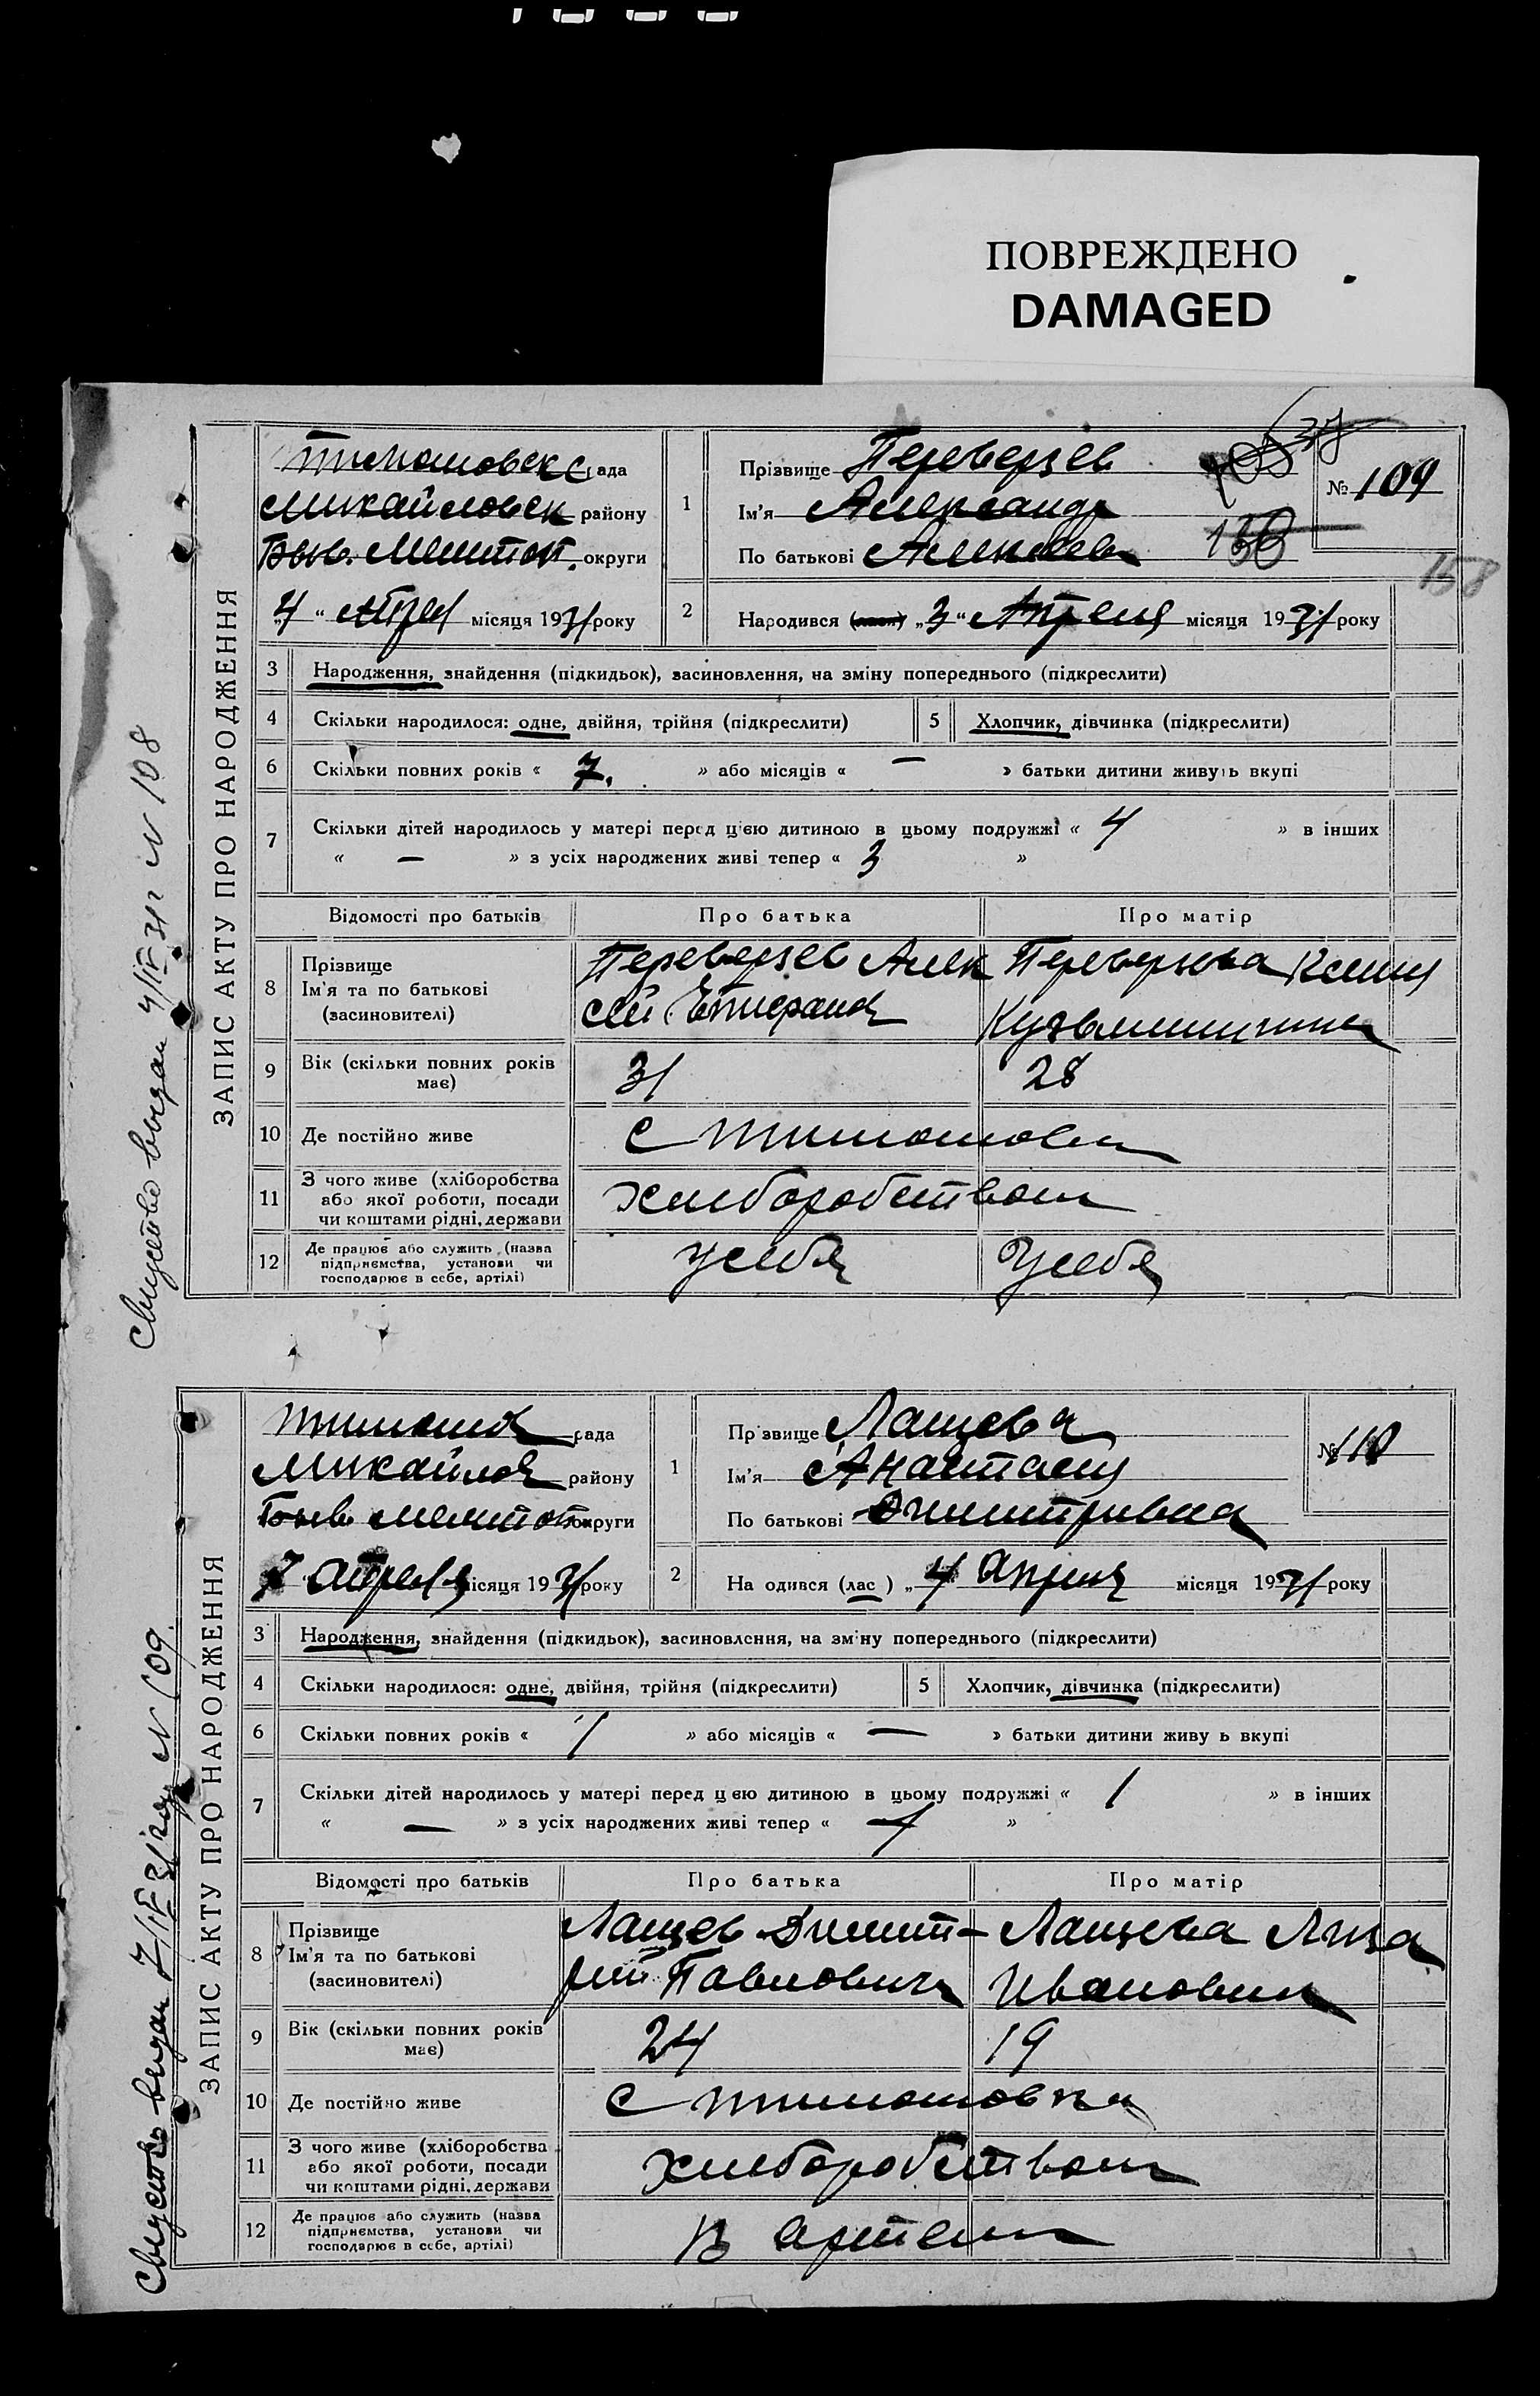 ПОВРЕЖДЕНО
DAMAGED
ЗАПИС АКТУ ПРО НАРОДЖЕННЯ
Тимошовск рада
Михайловск району
Бывь. Мелитоп. округи
4 " Апрел місяця 1931 року
1
Прізвище Переверзев
Ім'я Александр
По батькові Алексеев
№ 109
150
158
2
Народився „3“ Апреля місяця 1931 року
3 Народження, знайдення (підкидьок), засиновлення, на зміну попереднього (підкреслити)
4 Скільки народилося: одне, двійня, трійня (підкреслити) 5 Хлопчик, дівчинка (підкреслити)
6 Скільки повних років « 7. » або місяців « — » батьки дитини живуть вкупі
7 Скільки дітей народилось у матері перед цією дитиною в цьому подружжі « 4 » в інших
« — » з усіх народжених живі тепер « 3 »
Відомості про батьків Про батька Про матір
8 Прізвище Ім'я та по батькові (засновителі)
Переверзев Алек
сей
Переверзева Ксения
Кузьминична
9 Вік (скільки повних років має) 31 28
10 Де постійно живе с Тимошовка
11 З чого живе (хліборобства або якої роботи, посади чи коштами рідні, держави хлеборобством
12 Де працює або служить (назва підприємства, установи чи господарює в себе, артілі) у себя У себя
Свидетво выдан 4/IV 31 г N 108
ЗАПИС АКТУ ПРО НАРОДЖЕННЯ
Тимошов рада
Михайлов району
Бывь Мелитоп округи
7 Апреля місяця 1931 року
1
Пр звище Лащева
Ім'я Анастасия
По батькові Дмитривна
№ 110
2
На одився (лас ) „ 4 Апреля місяця 1931 року
3 Народження, знайдення (підкидьок), засиновлення, на зм ну попереднього (підкреслити)
4 Скільки народилося: одне, двійня, трійня (підкреслити) 5 Хлопчик, дівчинка (підкреслити)
6 Скільки повних років « 1 » або місяців « — » батьки дитини живу ь вкупі
7 Скільки дітей народилось у матері перед ц єю дитиною в цьому подружжі « 1 » в інших
« — » з усіх народжених живі тепер « »
Відомості про батьків Про батька Про матір
8 Прізвище Ім'я та по батькові (засиновителі)
Лащев Димит-
рий Павлович
Лащева Лиза
Ивановна
9 Вік (скільки повних років має) 24 19
10 Де постійно живе с Тимошовка
11 З чого живе (хліборобства або якої роботи, посади чи коштами рідні, держави хлеборобством
12 Де працює або служить (назва підприємства, установи чи господарює в себе, артілі) в артели
Свидетво выдан 7/IV 31 год N 109.